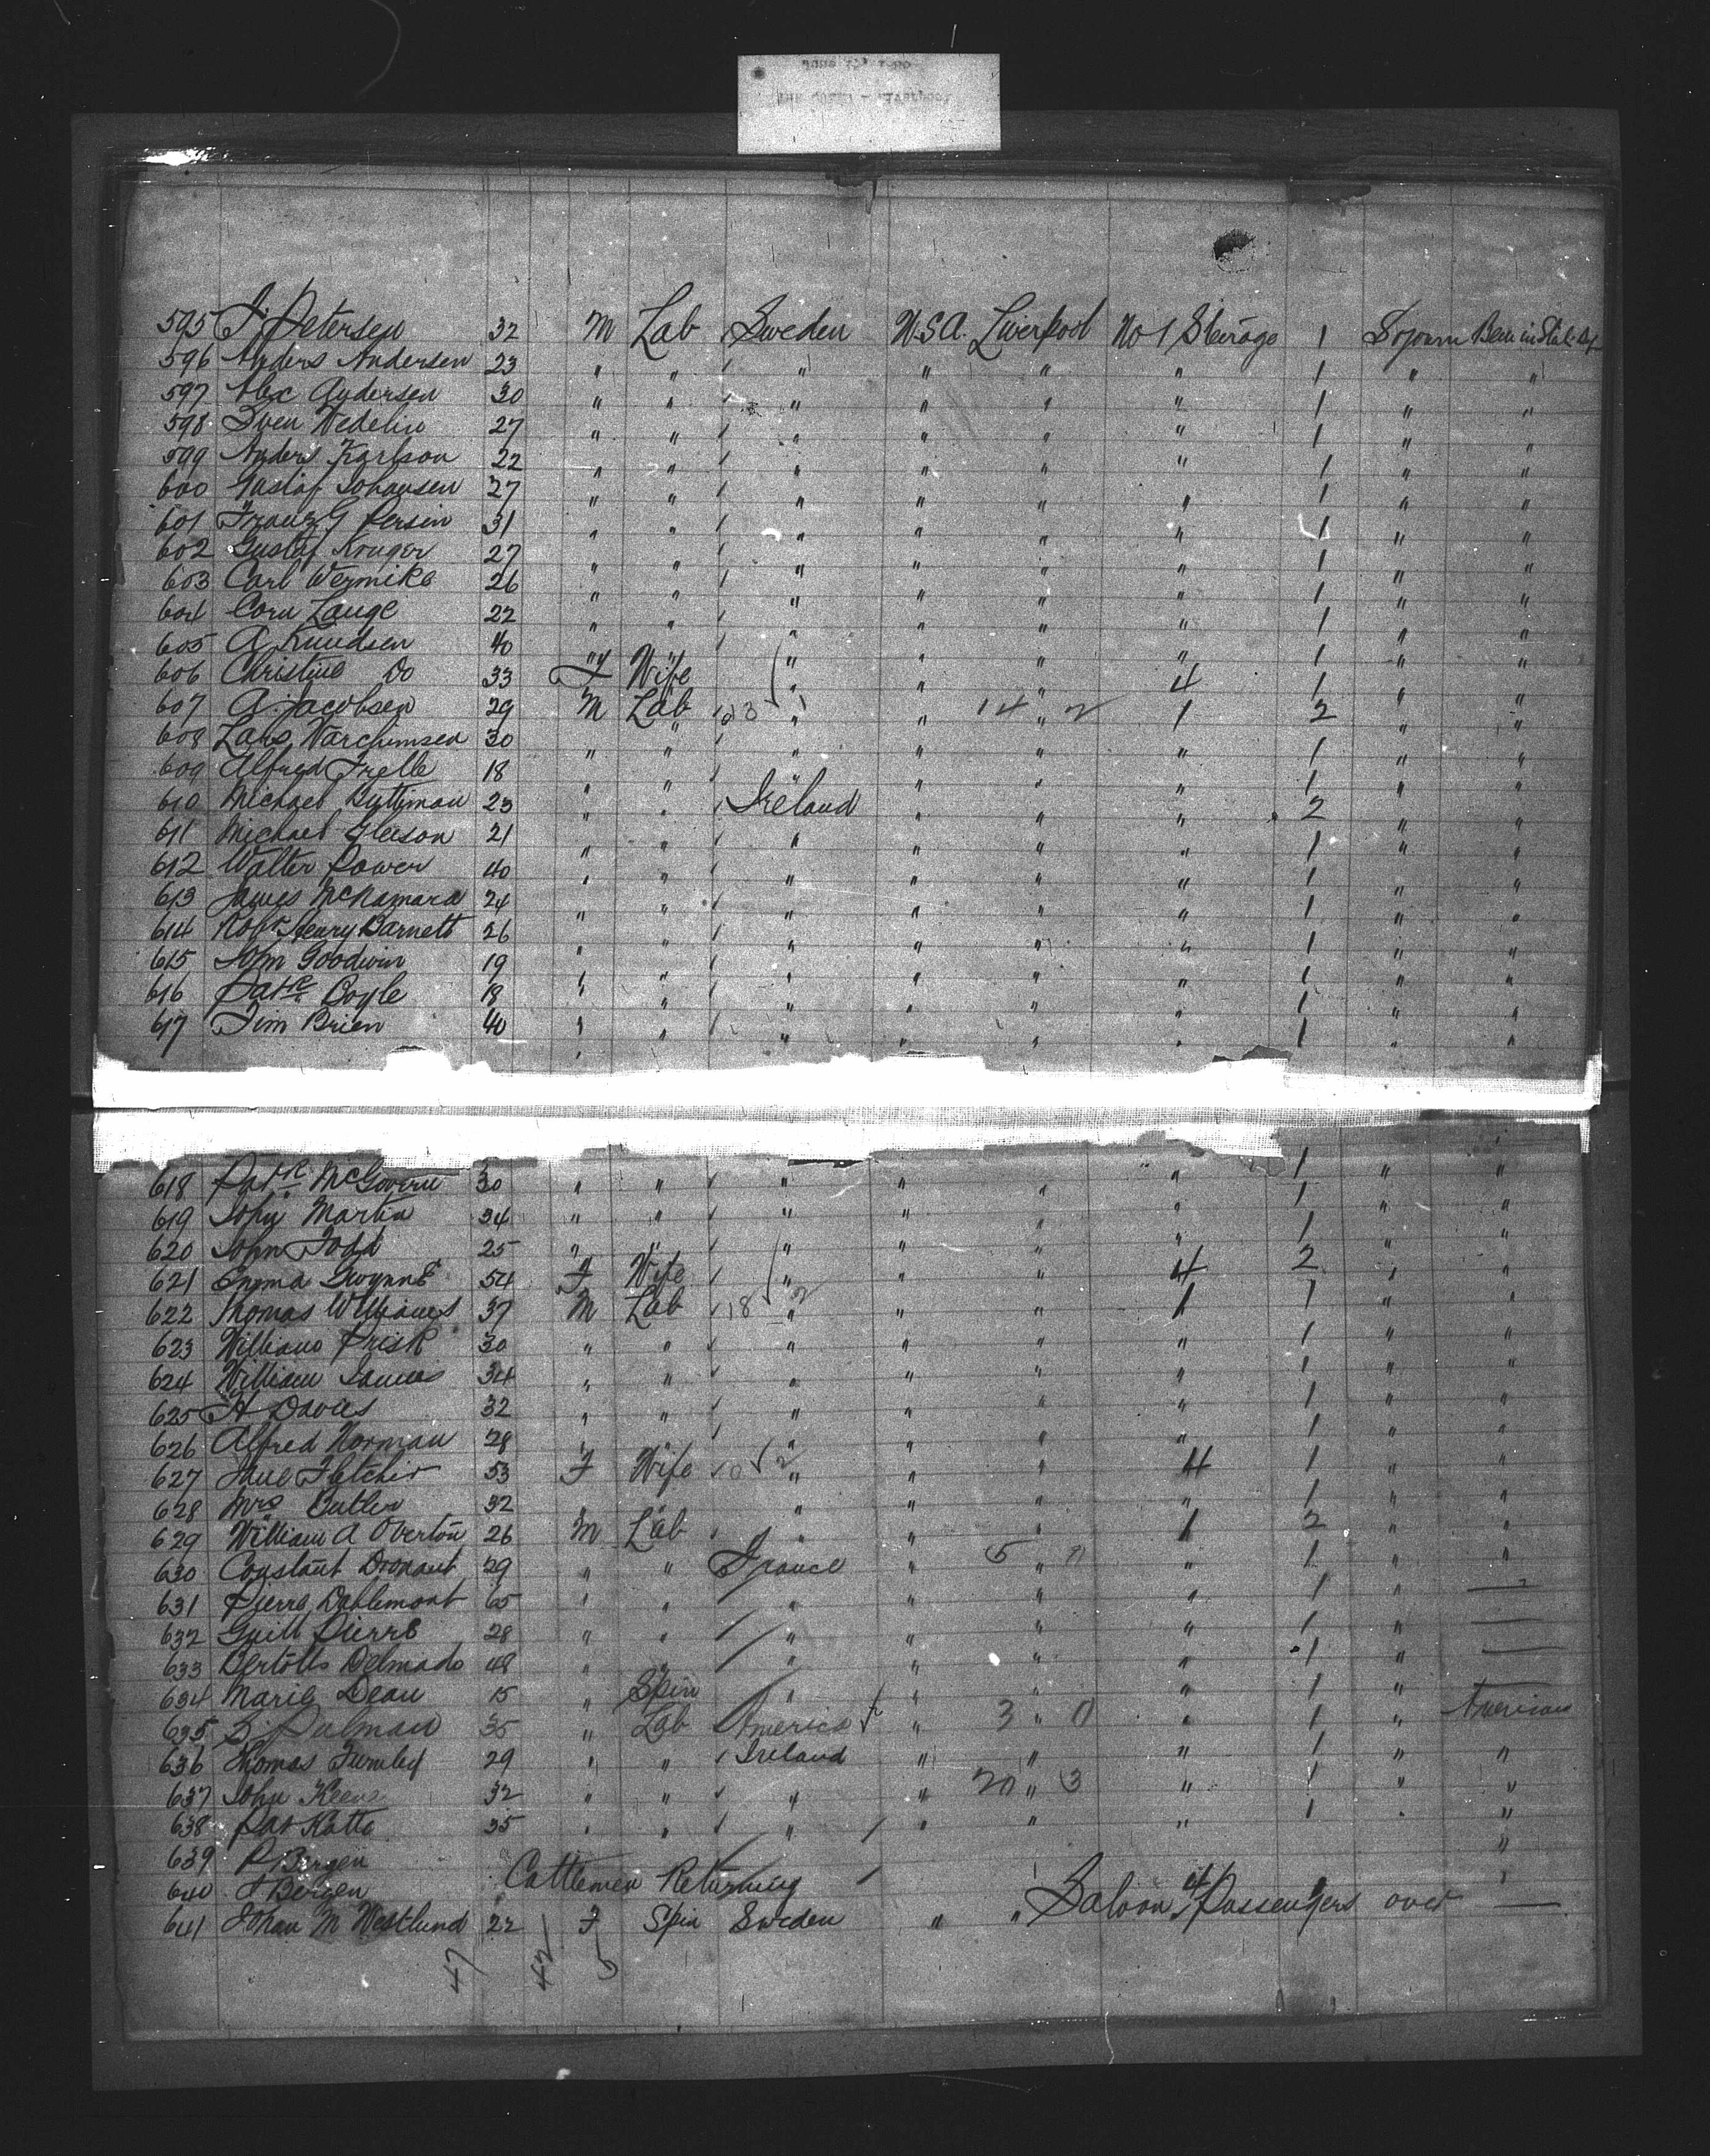 595 J. Petersen 32 M Lab Sweden U.S.A. Liverpool No 1 Sterage 1 Sojourn
596 Anders Andersen 23 " " " " " " 1 " "
597 Alex Andersen 30 " " " " " " 1 " "
598 Sven Wedelin 27 " " " " " " 1 " "
599 Anders Karlson 22 " " " " " " 1 " "
600 Gustaf Johansen 27 " " " " " " 1 " "
601 Franz G Persin 31 " " " " " " 1 " "
602 Gustaf Kruger 27 " " " " " " 1 " "
603 Carl Wermike 26 " " " " " " 1 " "
604 Corn Lange 22 " " " " " " 1 " "
605 A Knudsen 40 " " " " " " 1 " "
606 Christine Do 33 F Wife " " " 4 1 " "
607 A. Jacobsen 29 M Lab 23 " " 14 " 2 1 2 " "
608 Lars 30 " " " " " " 1 " "
609 Alfred Trelle 18 " " " " " " 1 " "
610 Michael Buttiman 23 " " Ireland " " " 2 " "
611 Michael Gleeson 21 " " " " " " 1 " "
612 Walter Power 40 " " " " " " 1 " "
613 James McNamara 24 " " " " " " 1 " "
614 Robt Henry Barnett 26 " " " " " " 1 " "
615 John Goodwin 19 " " " " " " 1 " "
616 Patk Boyle 18 " " " " " " 1 " "
617 Tim Brien 40 " " " " " " 1 " "
618 Patk McGovern 30 " " " " " " 1 " "
619 John Martin 34 " " " " " " 1 " "
620 John Todd 25 " " " " " " 1 " "
621 Emma Gwynne 54 F Wife " " " 4 2 " "
622 Thomas Williams 37 M Lab 18 2 " " " 1 1 " "
623 William Prisk 30 " " " " " " 1 " "
624 William James 34 " " " " " " 1 " "
625 H Davies 32 " " " " " " 1 " "
626 Alfred Norman 28 " " " " " " 1 " "
627 Jane Fletcher 53 F Wife 0 2 " " " 4 1 " "
628 Mrs Butler 32 " " " " " " 1 " "
629 William A Overton 26 M Lab " " " 1 2 " "
630 Constant Dronaut 29 " " France " 5 " 0 " 1 " "
631 Pierre Dahlemont 65 " " " " " " 1 " —
632 Guill Pierre 28 " " " " " " 1 " —
633 Bertolls Delmado 48 " " " " " " 1 " —
634 Marie Dean 15 " Spin " " " " 1 "
635 Pulman 35 " Lab America " 3 " 0 " 1 " American
636 Thomas 29 " " Ireland " " " 1 " "
637 John Keene 32 " " " " 20 " 3 " 1 " "
638 Pat Katto 35 " " " " " " 1 " "
639 P Bergen "
640 J Bergen Cattlemen Returning "
641 Johan M Westlund 22 F Spin Sweden " " Saloon 4 Passengers over —
47 42 5